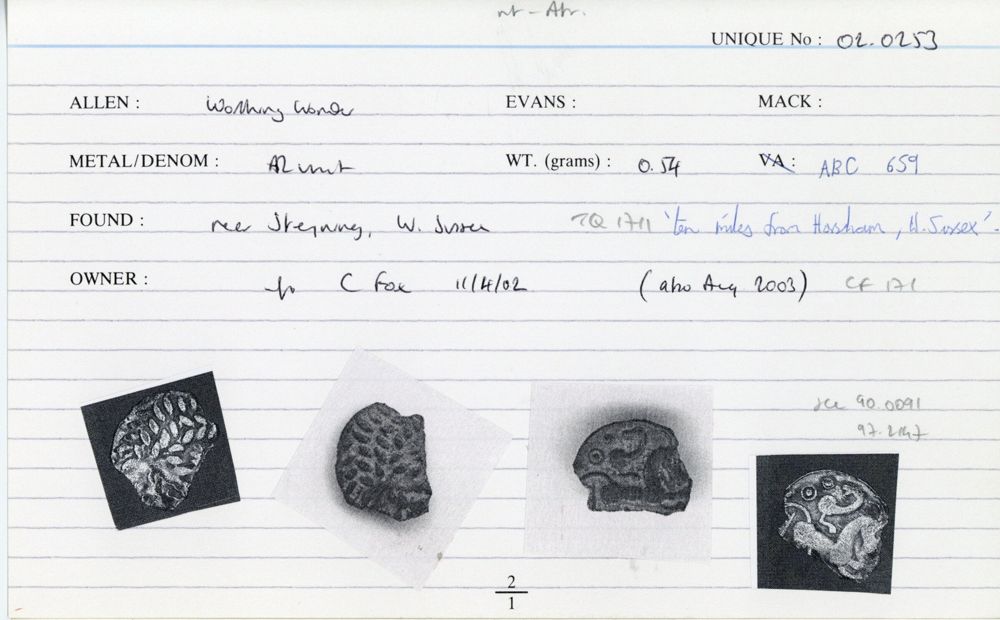 nt - Atr.
UNIQUE No : 02.0253
ALLEN : Worthing Wonder EVANS : MACK :
METAL/DENOM : AR unit WT. (grams) : 0.54 VA : ABC 659
FOUND : near Steyning, W. Sussex TQ 1711 'ten miles from Horsham, W. Sussex'.
OWNER : C Fox 11/4/02 (also Aug 2003) CF 171
see 90.0091
97.2147
2
1